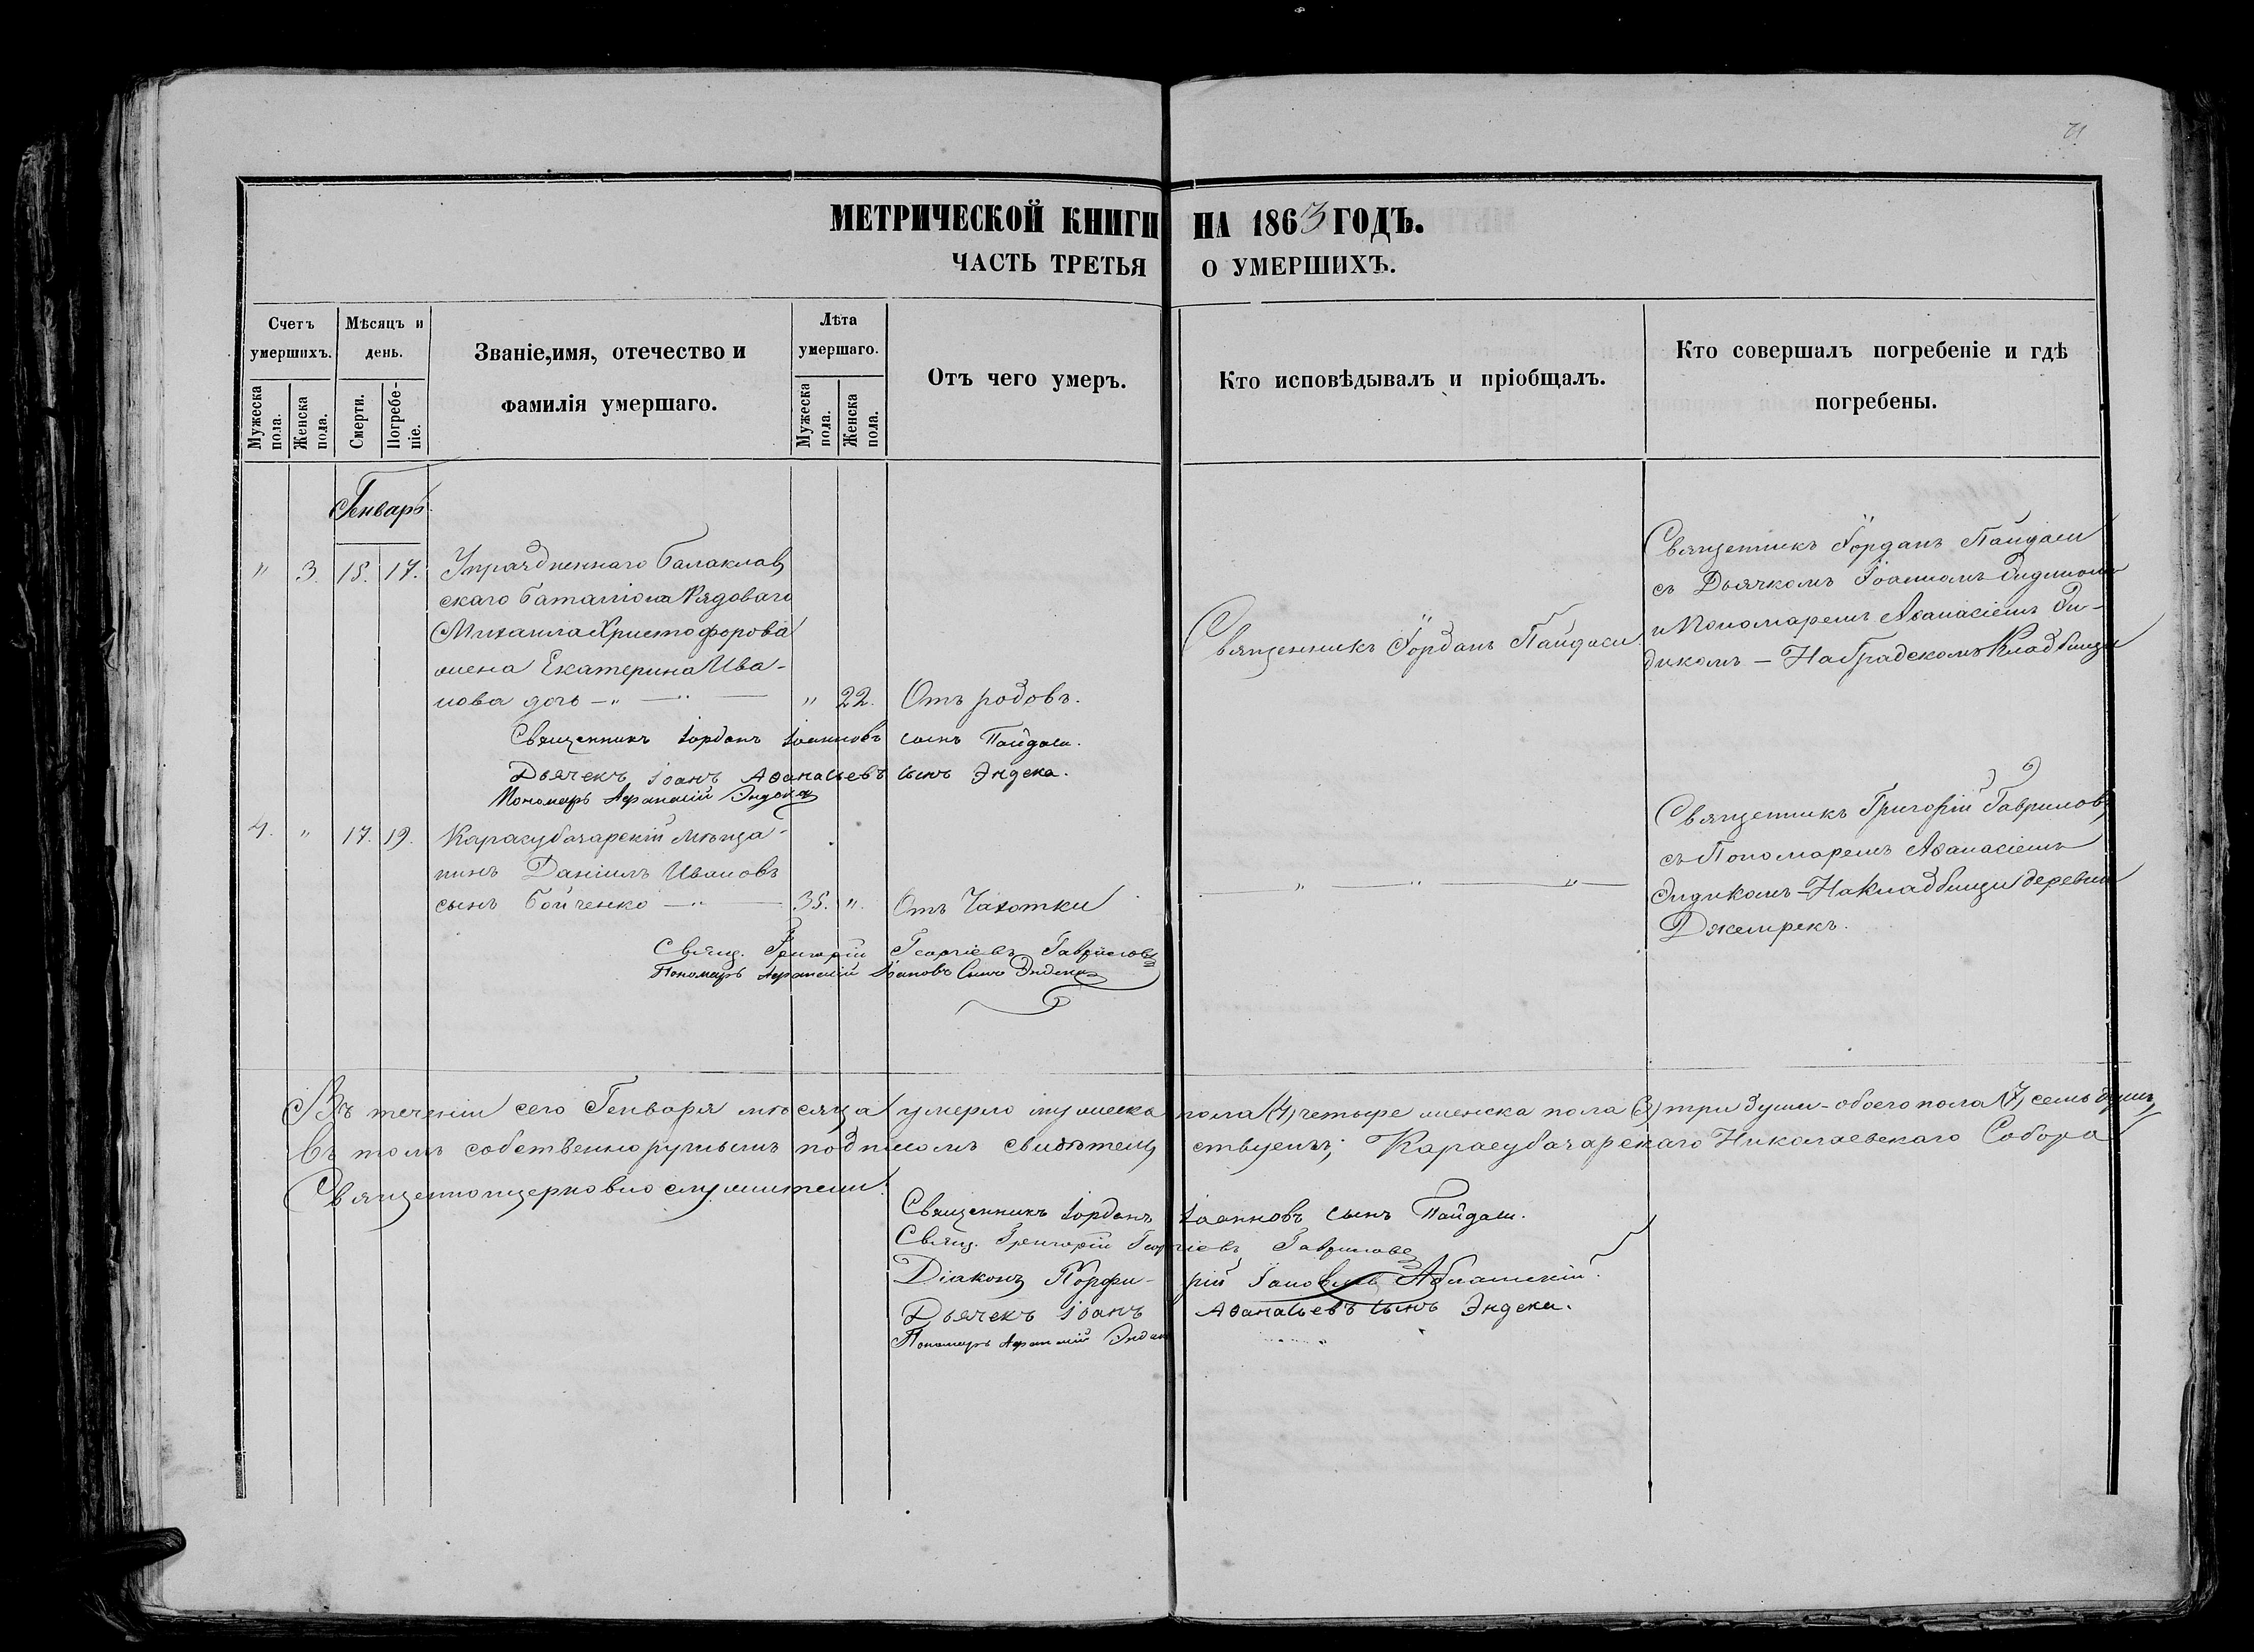 71
МЕТРИЧЕСКОЙ КНИГИ НА 1863 ГОДЪ.
ЧАСТЬ ТРЕТЬЯ О УМЕРШИХЪ.
Счетъ умершихъ.
Мужеска пола.
Женска пола.
Мѣсяцъ и день.
Смерти.
Погребе-
ніе.
Званіе, имя, отечество и
фамилія умершаго.
Лѣта умершаго.
Мужеска пола.
Женска пола.
Отъ чего умеръ.
Кто исповѣдывалъ и пріобщалъ.
Кто совершалъ погребеніе и гдѣ
погребены.
Генварь
" 3. 15. 17. Упраздненнаго Балаклав
скаго баталліона Рядоваго
Михаила Христофорова
жена Екатерина Ива-
нова дочь — " — " 22. Отъ родовъ.
Священникъ Іорданъ Пайдаси
Священникъ Іорданъ Пайдаси
съ Дьячкомъ Іоанномъ
и Пономаремъ Аѳанасіемъ Эн-
дикомъ — На Градскомъ Кладбищи
Священникъ Іорданъ Іоанновъ сынъ Пайдаси.
Дьячекъ Іоанъ Аѳанасьевъ сынъ Эндека.
Пономарь Афанасій Эндека
4. " 17. 19. Карасубазарскій мѣща-
нинъ Даніилъ Ивановъ
сынъ Бойченко — " — 35. " Отъ Чахотки
— " — " — " —
Священникъ Григорій Гавриловъ
съ Пономаремъ Аѳанасіемъ
Эндикомъ — На Кладбищи деревни
Джемрекъ.
Свящ. Григорій Георгіевъ Гавриловъ
Пономарь Афанасій Іоановъ Сынъ Эндека
Въ теченіи сего Генваря мѣсяца умерло мужеска пола (4) четыре женска пола (3) три души — обоего пола (7) семь душъ,
въ томъ собственноручнымъ подписомъ свидѣтель ствуемъ; Карасубазарскаго Николаевскаго Собора
Священноцерковнослужители:
Священникъ Іорданъ Іоанновъ сынъ Пайдаси.
Свящ. Григорій Георгіевъ Гавриловъ
Діаконъ Порфи- рій
Дьячекъ Іоанъ Аѳанасьевъ сынъ Эндека.
Пономарь Афанасій Эндека